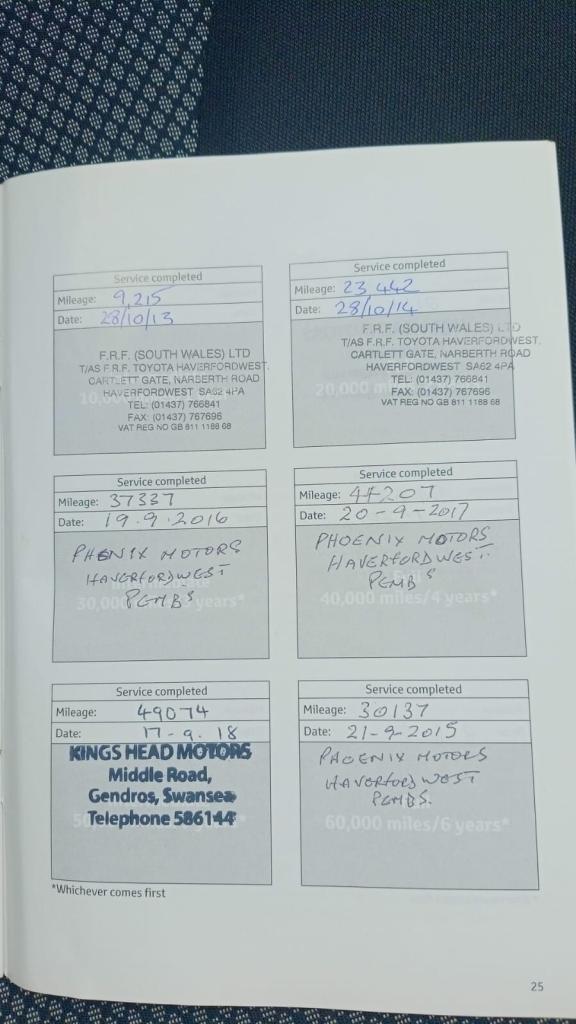 Service completed
Mileage: 9,215
Date: 28/10/13
F.R.F. (SOUTH WALES) LTD
T/AS F.R.F. TOYOTA HAVERFORDWEST.
CARTLETT GATE, NARBERTH ROAD
HAVERFORDWEST SA62 4PA
TEL: (01437) 766841
FAX: (01437) 767696
VAT REG NO GB 811 1188 68
Service completed
Mileage: 23 442
Date: 28/10/14
F.R.F. (SOUTH WALES) LTD
T/AS F.R.F. TOYOTA HAVERFORDWEST.
CARTLETT GATE, NARBERTH ROAD
HAVERFORDWEST SA62 4PA
20,000 m
TEL: (01437) 766841
FAX: (01437) 767696
VAT REG NO GB 811 1188 68
Service completed
Mileage: 37337
Date: 19.9.2016
PHENIX MOTORS
HAVERFORDWEST
PEMBS
30,000 years*
Service completed
Mileage: 44207
Date: 20-9-2017
PHOENIX MOTORS
HAVERFORDWEST.
PEMBS
40,000 miles/4 years*
Service completed
Mileage: 49074
Date: 17-9.18
KINGS HEAD MOTORS
Middle Road,
Gendros, Swansea
Telephone 586144
Service completed
Mileage: 30137
Date: 21-9-2015
PHOENIX MOTORS
HAVERFORDWEST
PEMBS.
60,000 miles/6 years*
*Whichever comes first
25